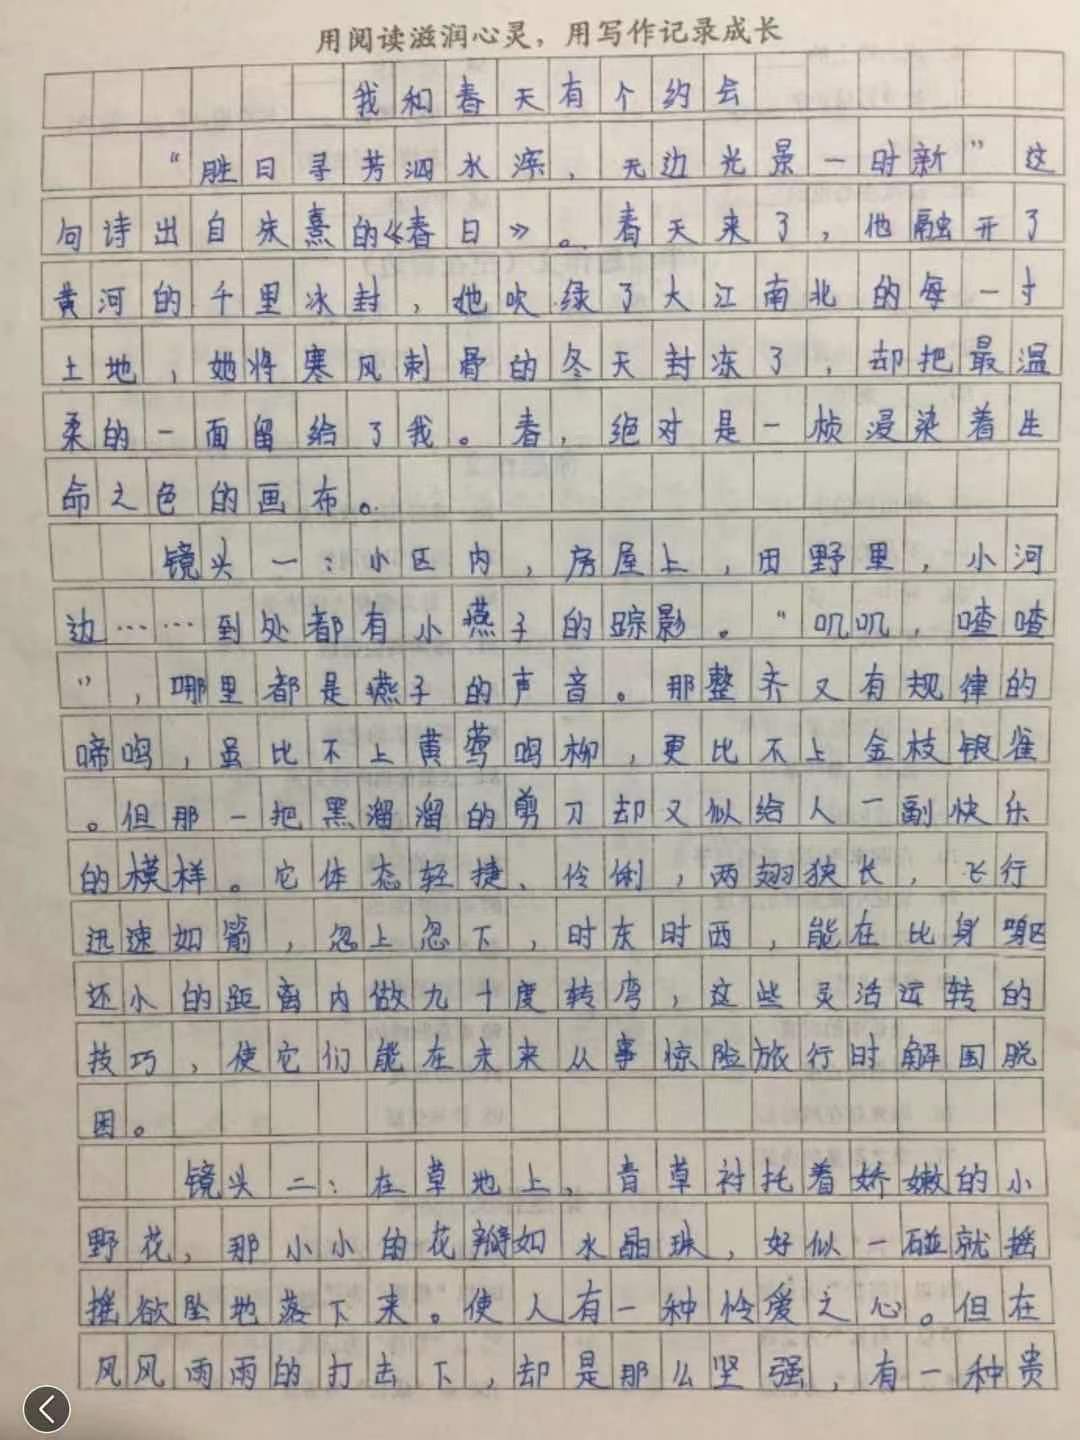 用阅读滋润心灵，用写作记录成长
我和春天有个约会
“胜日寻芳泗水滨，无边光景一时新”这
句诗出自朱熹的《春日》。春天来了，他融开了
黄河的千里冰封，她吹绿了大江南北的每一寸
土地，她将寒风刺骨的冬天封冻了，却把最温
柔的一面留给了我。春，绝对是一桢浸染着生
命之色的画布。
镜头一：小区内，房屋上，田野里，小河
边……到处都有小燕子的踪影。“叽叽，喳喳
”，哪里都是燕子的声音。那整齐又有规律的
啼鸣，虽比不上黄莺鸣柳，更比不上金枝银雀
。但那一把黑溜溜的剪刀却又似给人一副快乐
的模样。它体态轻捷、伶俐，两翅狭长，飞行
迅速如箭，忽上忽下，时东时西，能在比身躯
还小的距离内做九十度转弯，这些灵活运转的
技巧，使它们能在未来从事惊险旅行时解围脱
困。
镜头二：在草地上，青草衬托着娇嫩的小
野花，那小小的花瓣如水晶珠，好似一碰就摇
摇欲坠地落下来。使人有一种怜爱之心。但在
风风雨雨的打击下，却是那么坚强，有一种贵